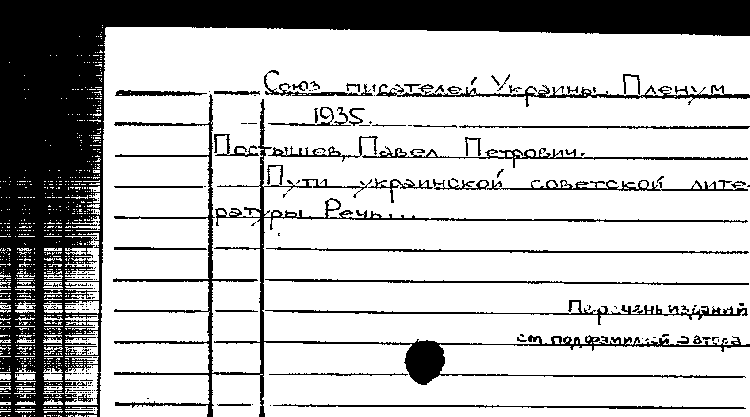 Союз писателей Украины. Пленум
1935.
Постышев, Павел Петрович.
Пути украинской советской лите-
ратуры. Речь...
Перечень изданий
см. под фамилией автора